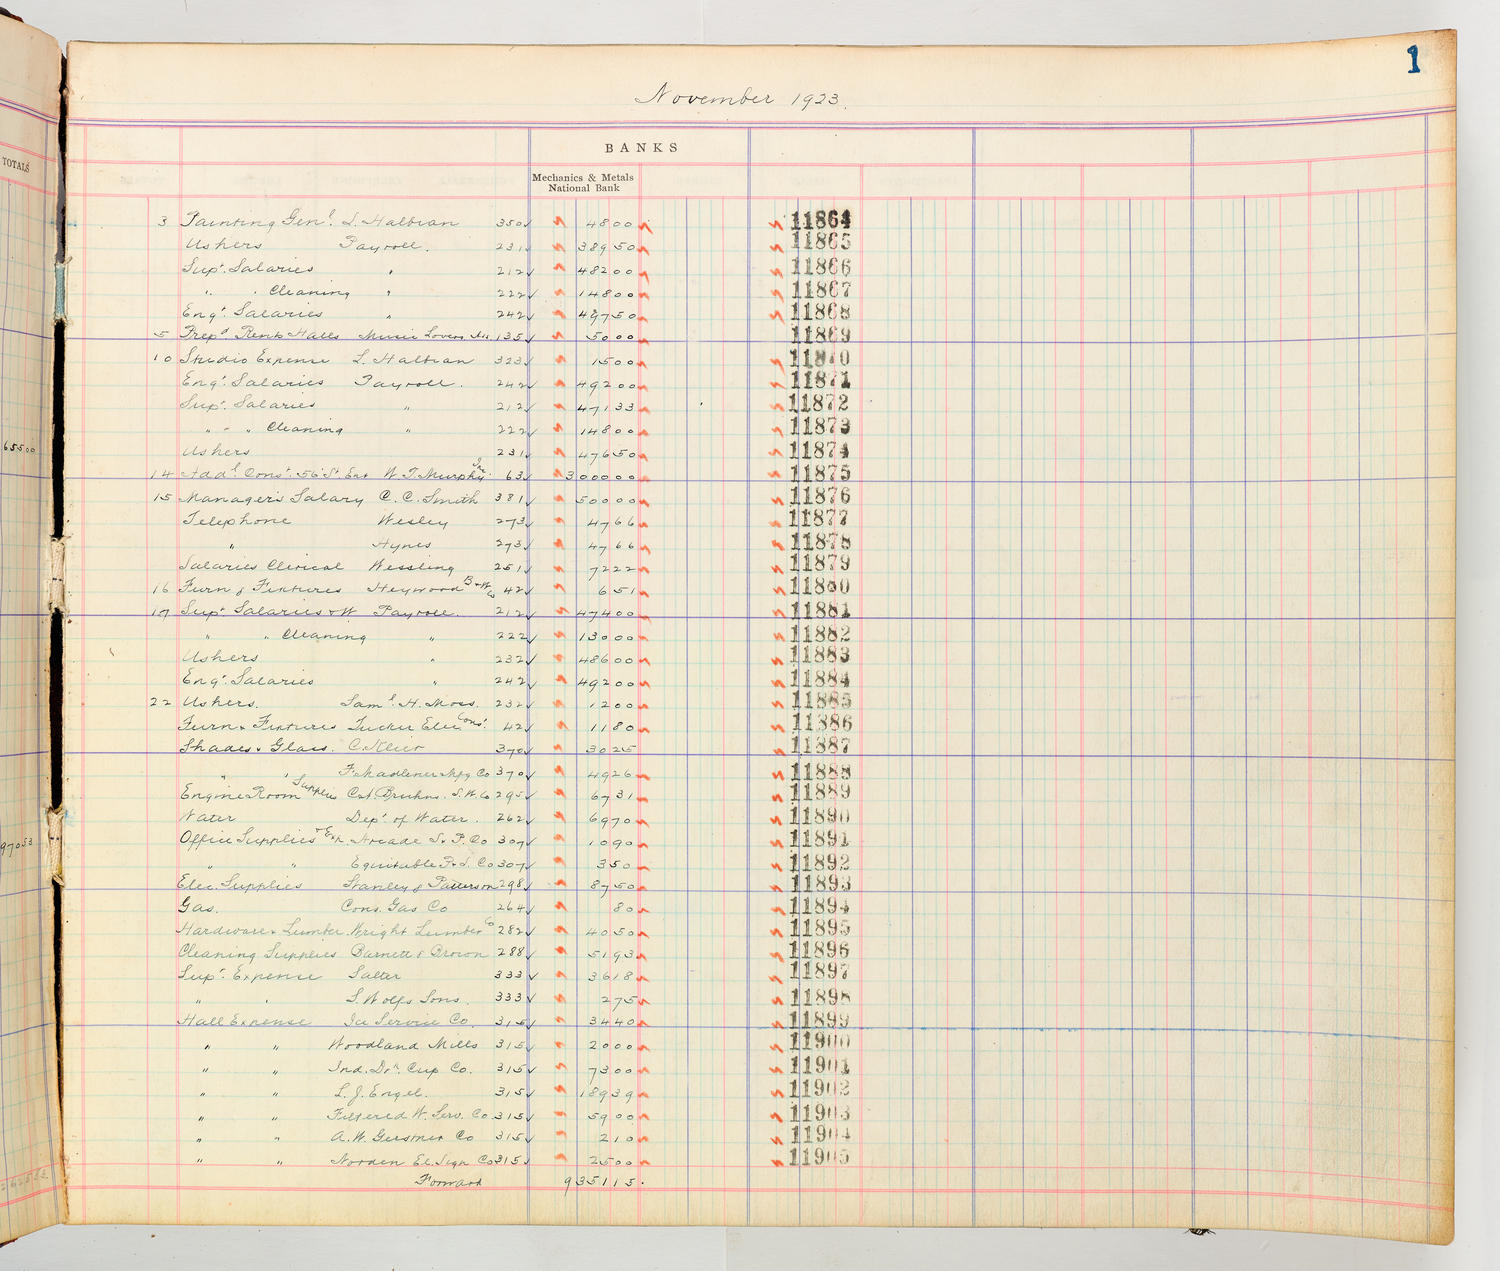 1
November 1923.
TOTALS
BANKS
Mechanics & Metals
National Bank
3 Painting Genl. L. Halbran 350 4800 11864
Ushers Payroll. 231 38950 11865
Supt. Salaries " 212 48200 11866
" " Cleaning " 222 14800 11867
Engr. Salaries " 242 49750 11868
5 Prepd Rents Halls Music Lovers 135 5000 11869
10 Studio Expense L. Halbran 323 1500 11870
Engr. Salaries Payroll. 242 49200 11871
Supt. Salaries " 212 47133 11872
" " " Cleaning " 222 14800 11873
Ushers 231 47650 11874
14 Addl. Const. 56 St. Ent W. J. Murphy Inc. 63 300000 11875
15 Managers Salary C. C. Smith 381 50000 11876
Telephone Wesley 273 4766 11877
" Hynes 273 4766 11878
Salaries Clerical Wessling 251 7222 11879
16 Furn & Fixtures Heywood B & W Co 42 651 11880
17 Supt Salaries & W Payroll. 212 47400 11881
" " Cleaning " 222 13000 11882
Ushers " 232 48600 11883
Engr. Salaries " 242 49200 11884
22 Ushers. Saml. H. Moss. 232 1200 11885
Furn & Fixtures Tucker Elec Cons. 42 1180 11886
Shades & Glass. C. Klier 370 3025 11887
" " Mfg Co 370 4926 11888
Engine Room Supplies Bruhns. S. W. Co 295 6731 11889
Water Dept. of Water. 262 6970 11890
Office Supplies & Exp. Arcade S. & P. Co 307 1090 11891
" " Equitable P. & S. Co 307 350 11892
Elec. Supplies Stanley & Patterson 298 8750 11893
Gas. Cons. Gas Co 264 80 11894
Hardware & Lumber. Wright Lumber Co 282 4050 11895
Cleaning Supplies Barnett & Brown 288 5193 11896
Supt. Expense Salter 333 3618 11897
" " S. Wolfs Sons. 333 275 11898
Hall Expense Ice Service Co. 315 3440 11899
" " Woodland Mills 315 2000 11900
" " Ind. Dr. Cup Co. 315 7300 11901
" " L. J. Engel. 315 18939 11902
" " Filtered W. Serv. Co 315 5900 11903
" " A. W. Gerstner Co 315 210 11904
" " Norden El. Sign Co 315 2500 11905
Forward 935115.
65500
97053